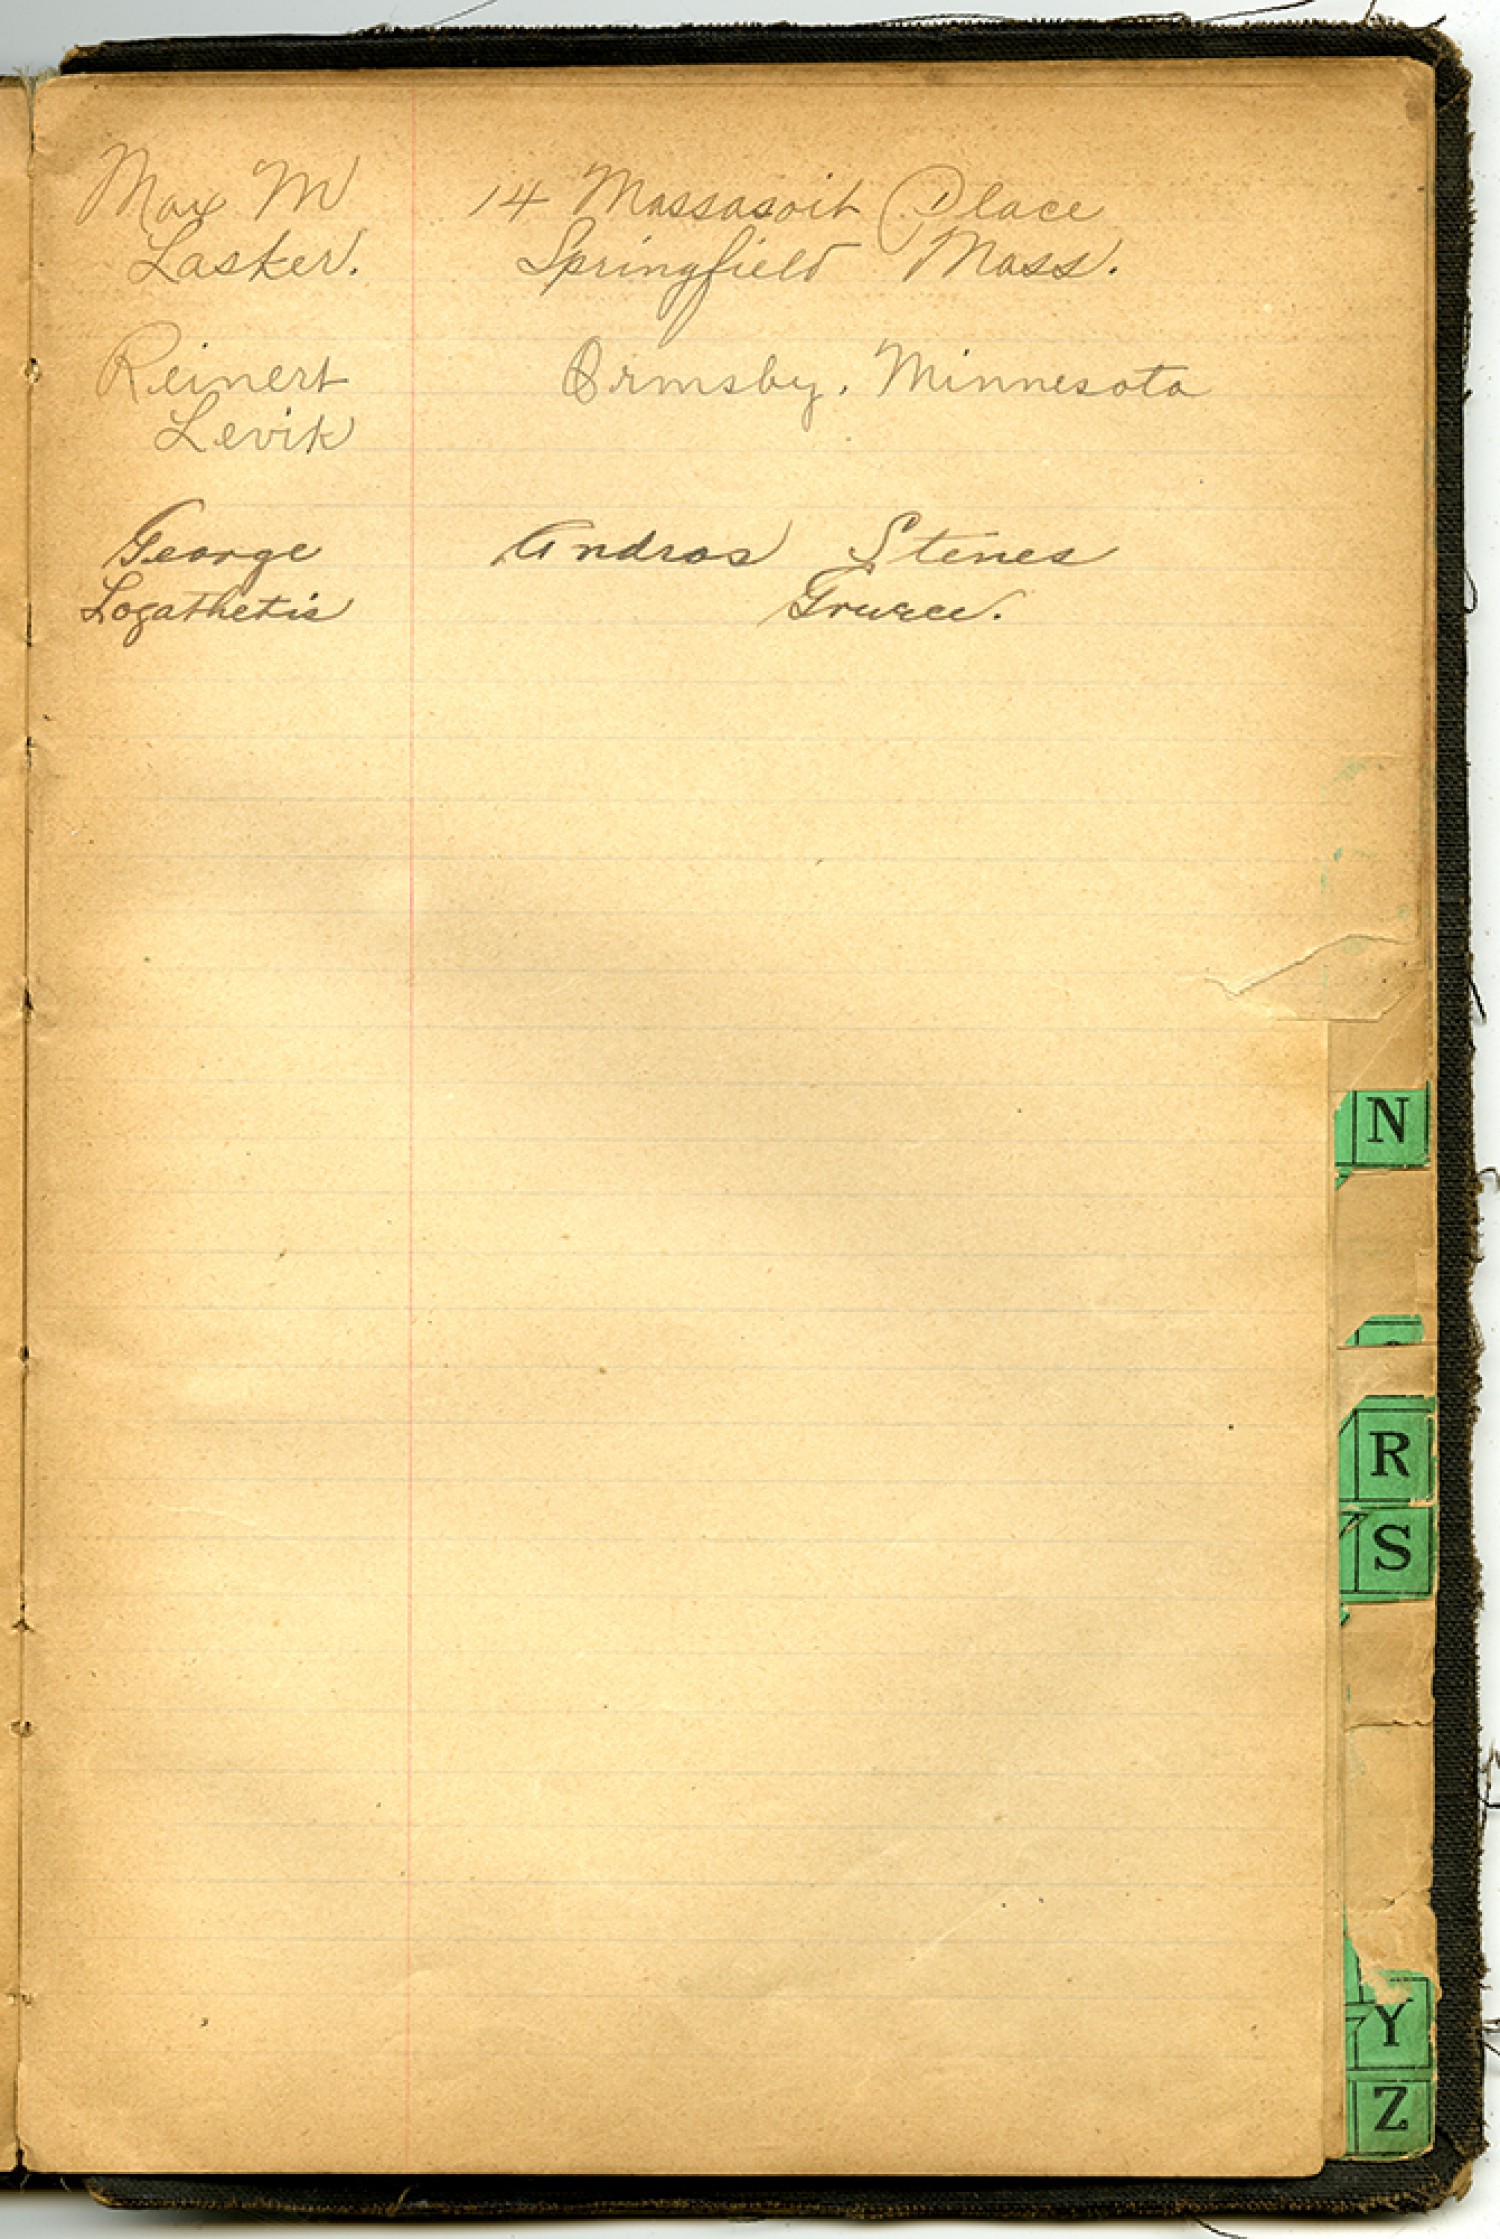 Max M 14 Massasoit Place
Lasker. Springfield Mass.
Reinert Ormsby, Minnesota
Levik
George Andros Stenes
Logathetis Greece.
N
R
S
Y
Z